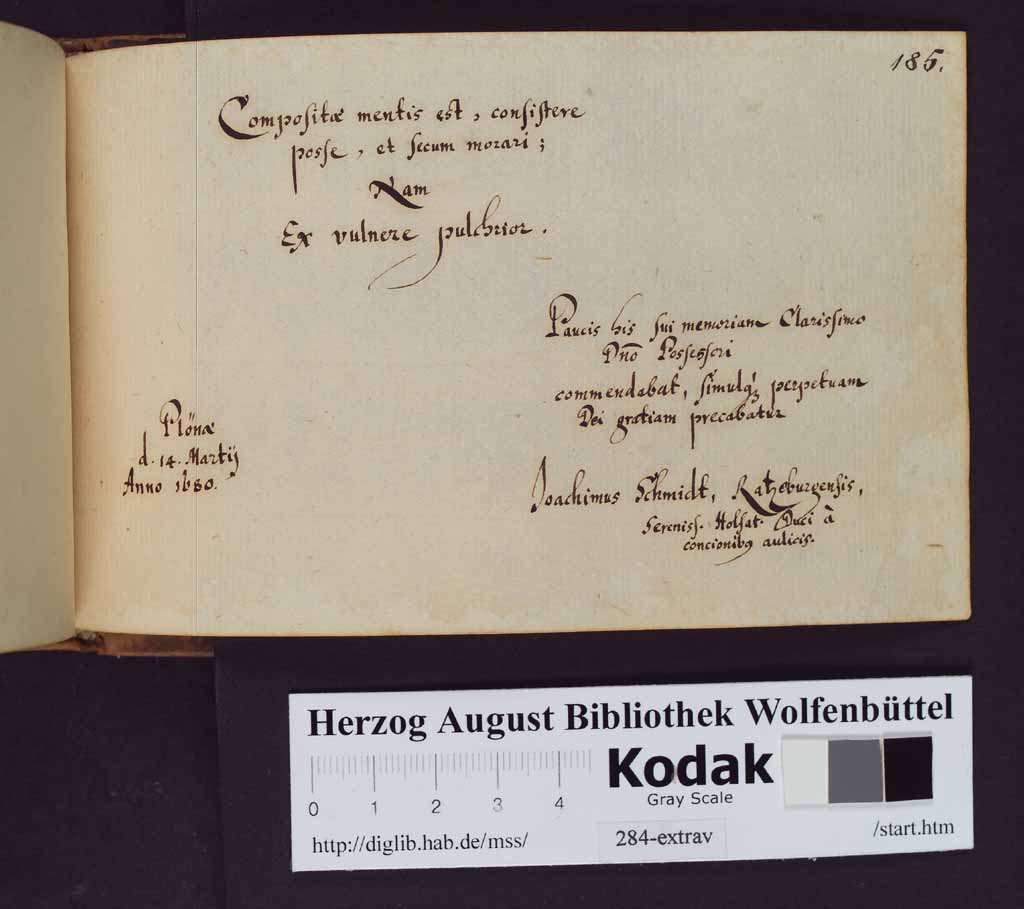 185.
Compositæ mentis est, consistere
posse, et secum morari;
Nam
Ex vulnere pulchrior.
Paucis his sui memoriam Clarissimo
Dnō Possessori
commendabat, simulq́; perpetuam
Dei gratiam precabatur
Plönæ
d. 14. Martij
Anno 1680.
Joachimus Schmidt, Ratzeburgensis,
Sereniss. Holsat. Duci à
concionibꝰ aulicis.
Herzog August Bibliothek Wolfenbüttel
Kodak
Gray Scale
0 1 2 3 4
http://diglib.hab.de/mss/ 284-extrav /start.htm